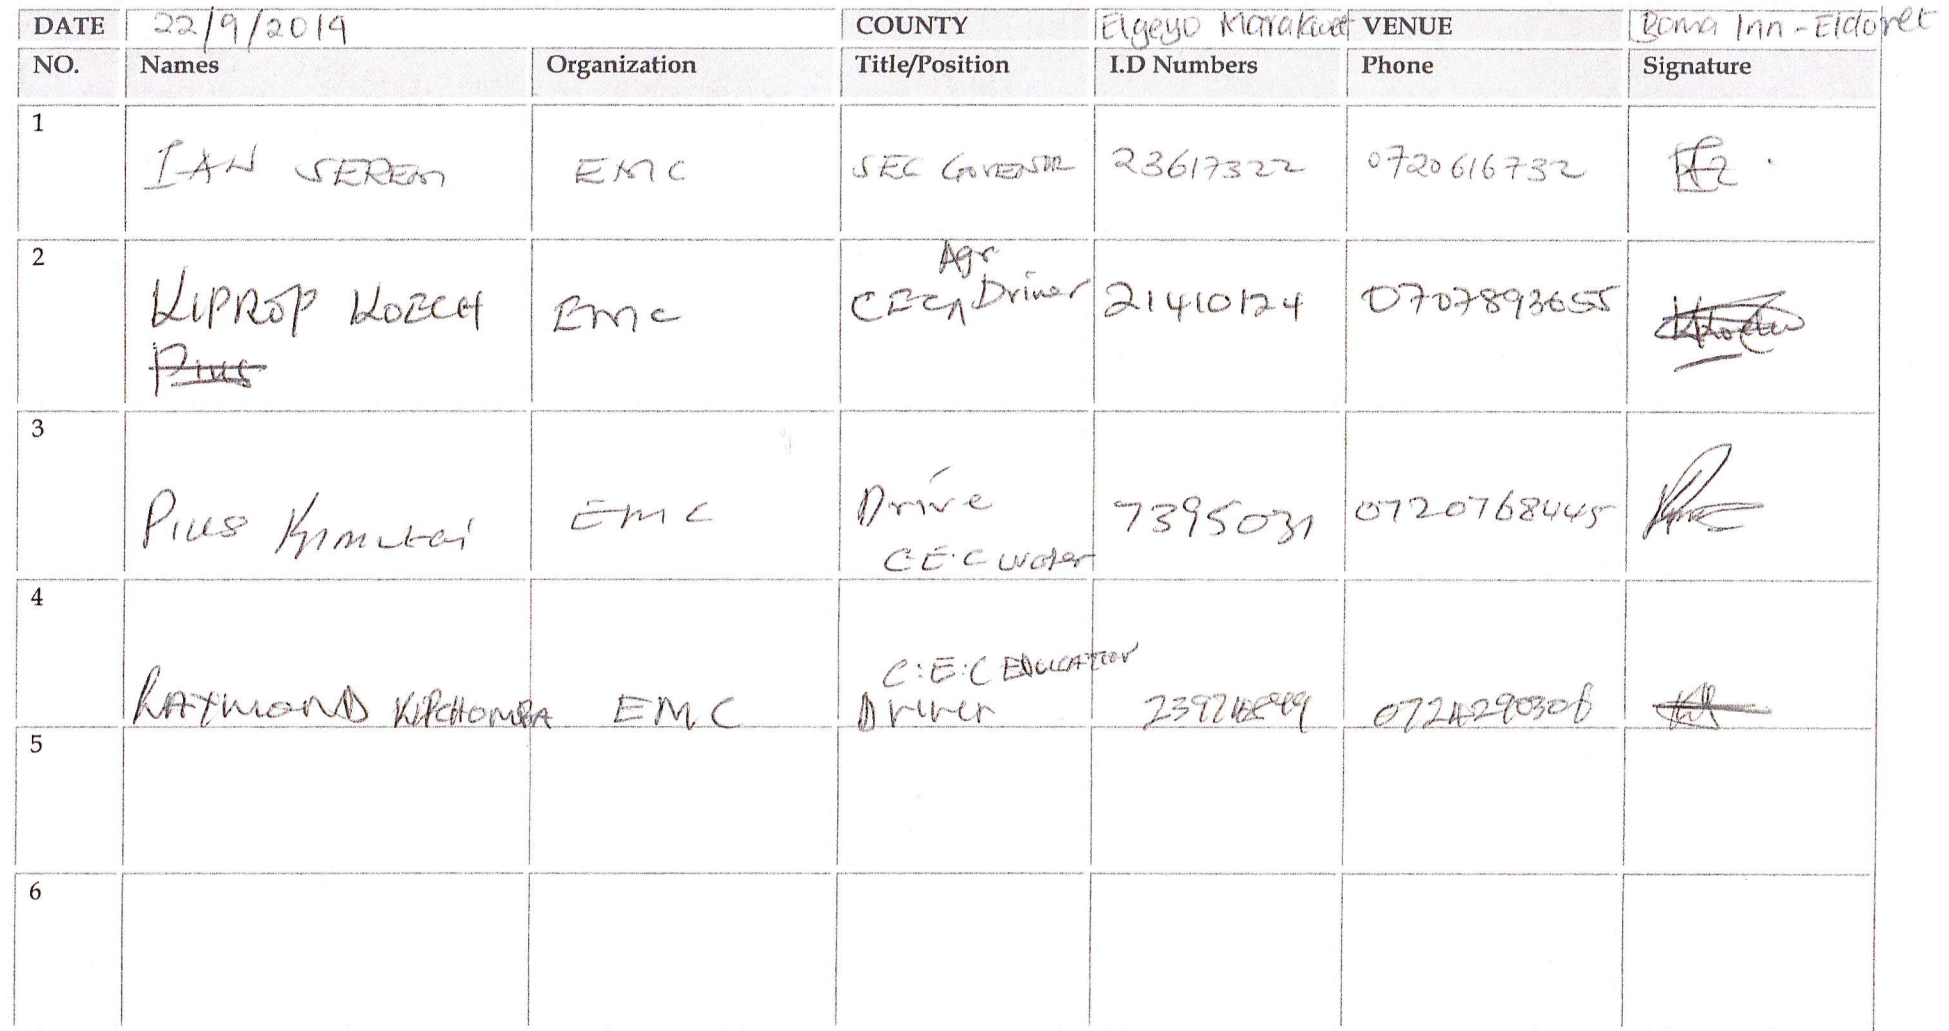 DATE 22/9/2019 COUNTY Elgeyo Marakwet VENUE Boma Inn - Eldoret
NO. Names Organization Title/Position I.D Numbers Phone Signature
1 IAN SEREM EMC SEC GOVERNOR 23617322 0720616732
2 KIPROP KOECH EMC CEC Agr Driver 21410124 0707893655
Pius
3 Pius Kimutai EMC Drive 7395031 0720768445
C.E.C water
4 C.E.C EDUCATION
RAYMOND KIPCHOMBA EMC Driver
5
6